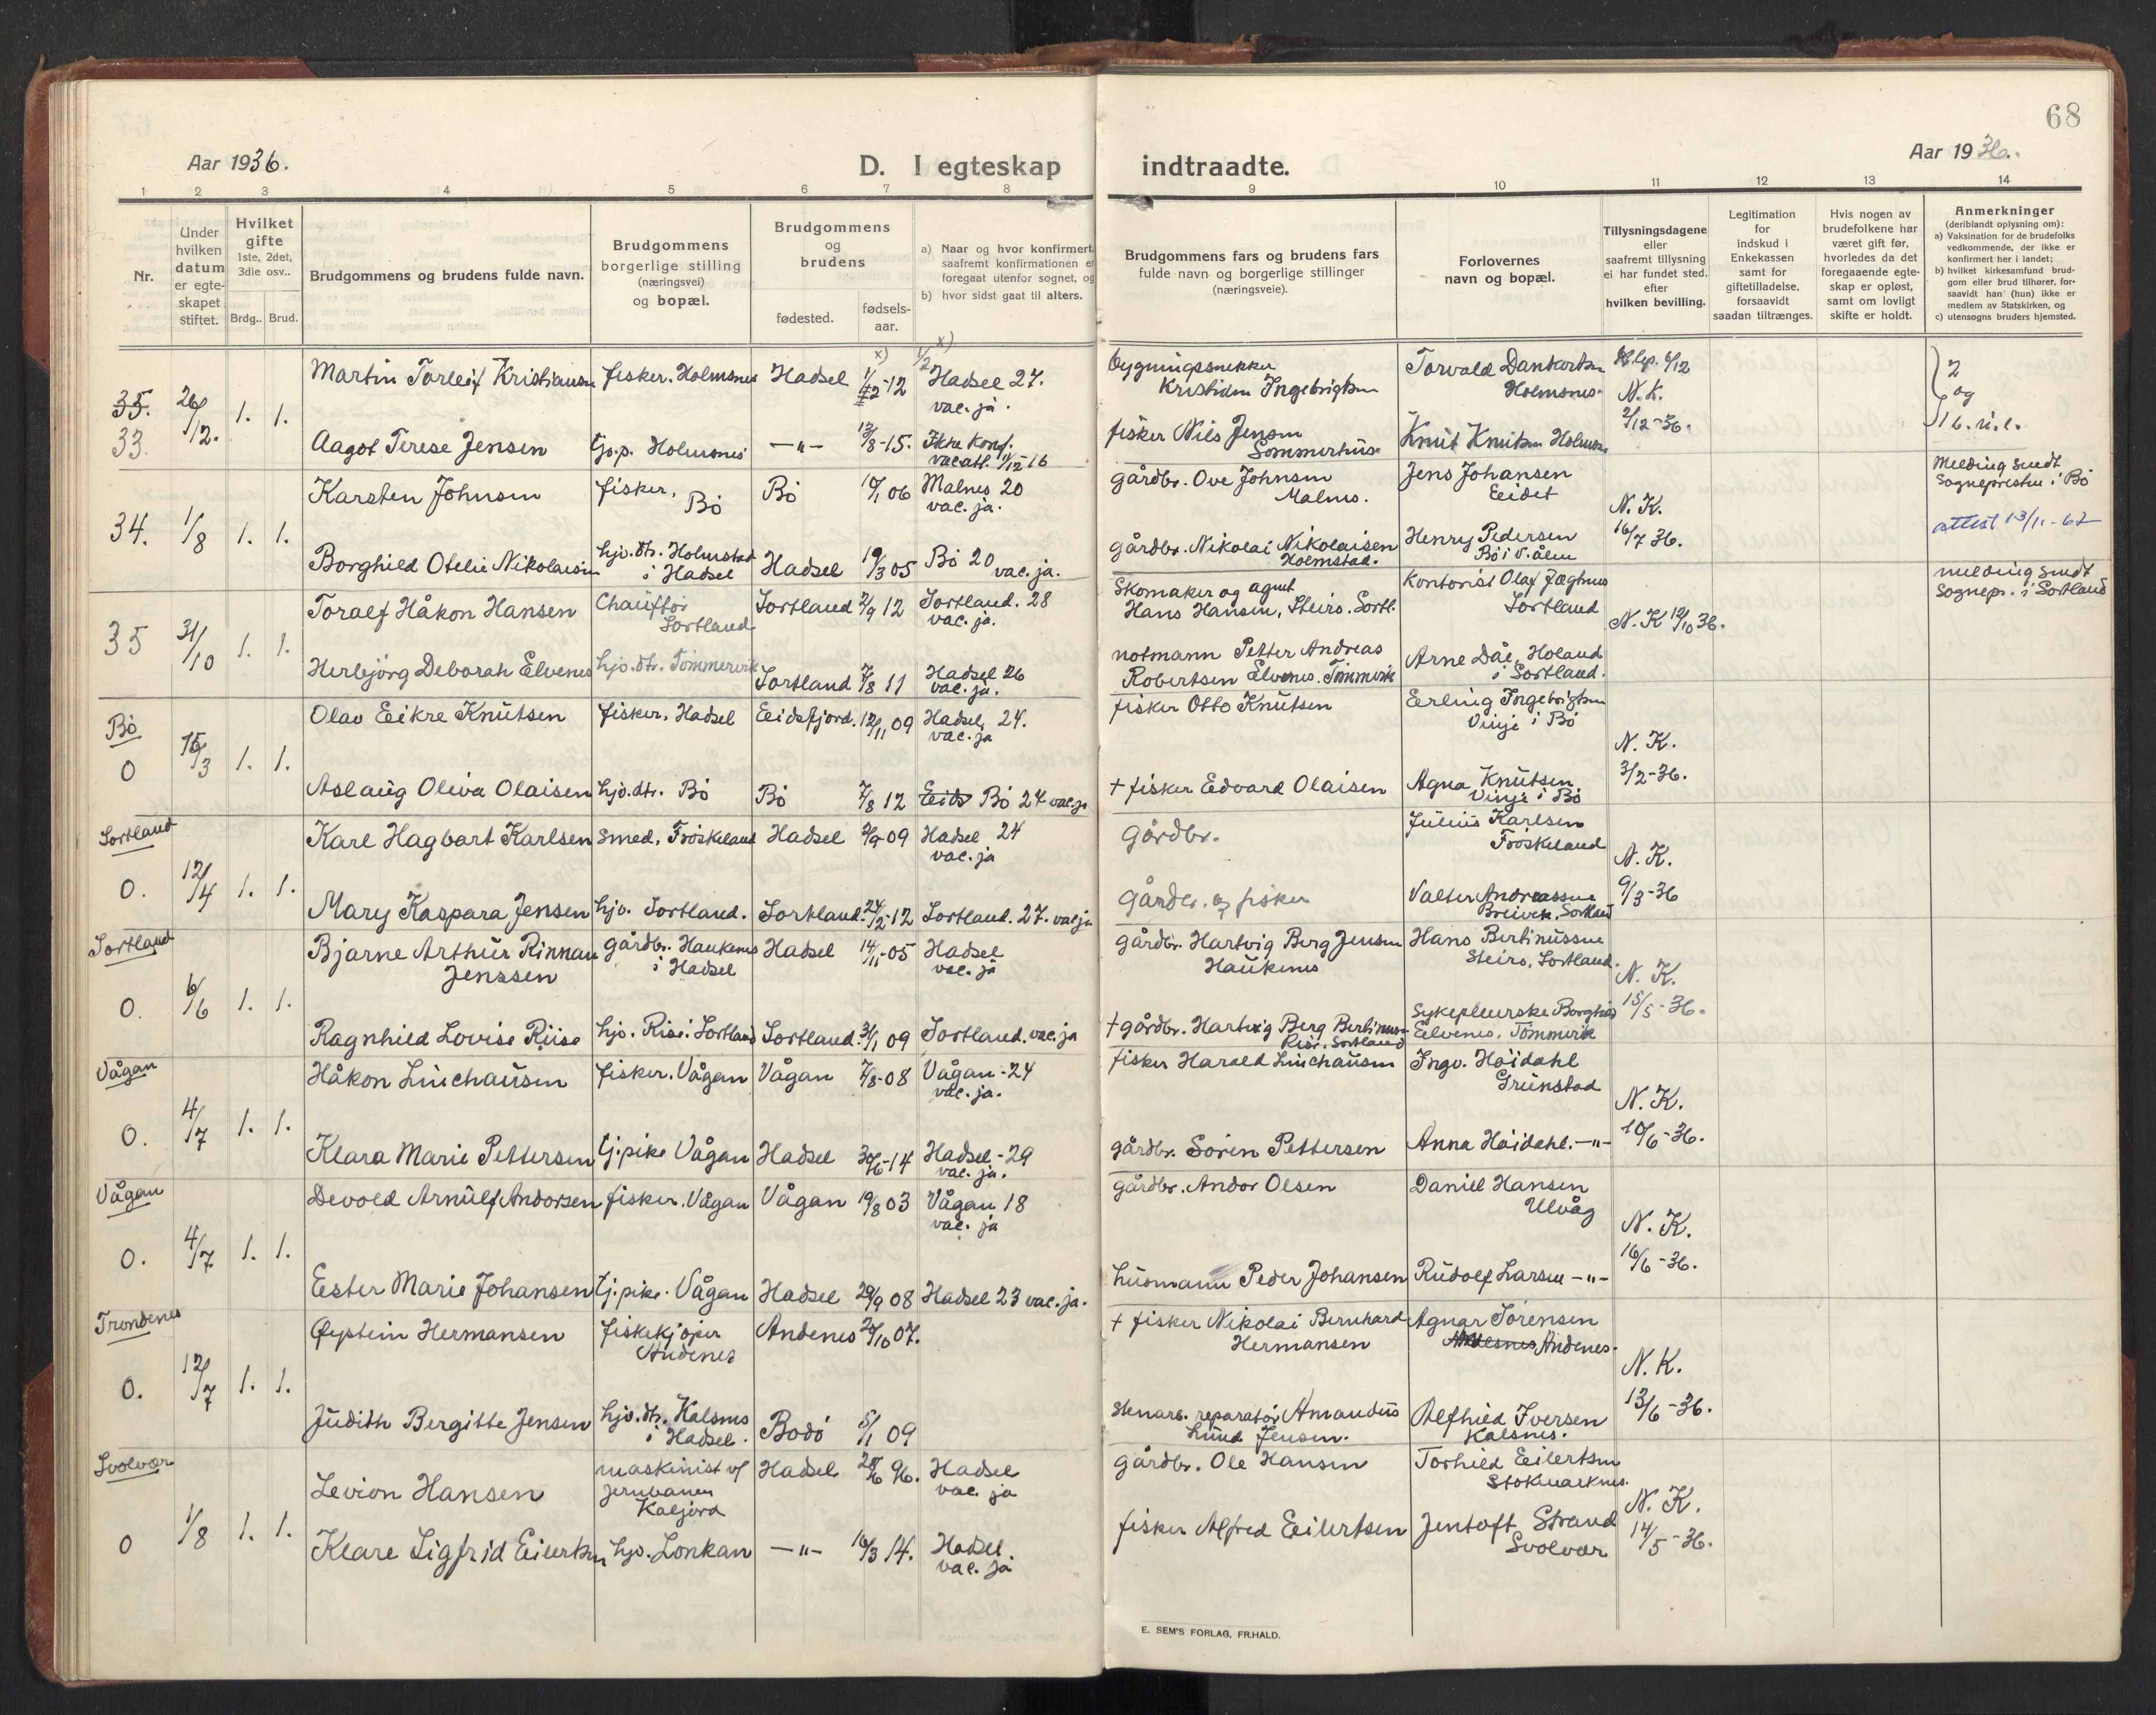 68
Aar 1936.
D. I egteskap indtraadte.
Aar 1936.
1 2 3 4 5 6 7 8 9 10 11 12 13 14
Nr.
Under
hvilken
datum
er egte-
skapet
stiftet.
Hvilket
gifte
1ste, 2det,
3die osv..
Brdg.. Brud.
Brudgommens og brudens fulde navn.
Brudgommens
borgerlige stilling
(næringsvei)
og bopæl.
Brudgommens
og
brudens
fødested.
fødsels-
aar.
a) Naar og hvor konfirmert,
saafremt konfirmationen er
foregaat utenfor sognet, og
b) hvor sidst gaat til alters.
Brudgommens fars og brudens fars
fulde navn og borgerlige stillinger
(næringsveie).
Forlovernes
navn og bopæl.
Tillysningsdagene
eller
saafremt tillysning
ei har fundet sted.
efter
hvilken bevilling.
Legitimation
for
indskud i
Enkekassen
samt for
giftetilladelse,
forsaavidt
saadan tiltrænges.
Hvis nogen av
brudefolkene har
været gift før,
hvorledes da det
foregaaende egte-
skap er opløst,
samt om lovligt
skifte er holdt.
Anmerkninger
(deriblandt oplysning om):
a) Vaksination for de brudefolks
vedkommende, der ikke er
konfirmert her i landet;
b) hvilket kirkesamfund brud-
gom eller brud tilhører, for-
saavidt han (hun) ikke er
medlem av Statskirken, og
c) utensogns bruders hjemsted.
35. 26/12. 1. 1.
33.
Martin Torleif Kristiansen fisker. Holmsnes Hadsel 12 Hadsel 27.
vac. ja.
bygningssnekker
Kristian Ingebrigtsen
Torvald Dankertsen
Holmsnes.
N. K.
2/12-36.
2
og
Aagot Terese Jensen tj.p. Holmsnes -"- 13/8-15. Ikke konf.
vacatt. 16
fisker Nils Jensen
Sommerhus.
Knut Knutsen Holmsnes
34. 1/8 1. 1.
Karsten Johnsen fisker, Bö Bö 10/1 06 Malnes 20
vac. ja.
gårdbr. Ove Johnsen
Malnes.
Jens Johansen
Eidet
N. K.
16/7 36.
Melding sendt
Sognepresten i Bö
attest 13/11-62
Borghild Otelie Nikolaisen hjv. dtr. Holmstad
i Hadsel Hadsel 19/3 05 Bö 20 vac. ja.
gårdbr. Nikolai Nikolaisen
Holmstad.
Henry Pedersen
Bö i V.ålen
35 31/10 1. 1.
Toralf Håkon Hansen Chauffør
Sortland Sortland 2/9 12 Sortland. 28
vac. ja.
Skomaker og agent
Hans Hansen, Steiro. Sortl.
Kontorist Olaf Jæghus
Sortland
N. K 12/10 36.
melding sendt
Sognepr. i Sortland
Herbjörg Deborah Elvenes hjv. dtr. Tömmervik Sortland 7/8 11 Hadsel 26
vac. ja.
notmann Petter Andreas
Robertsen Elvenes. Tömmervik
Arne Dåe, Holand
i Sortland.
Bö
0 15/3 1. 1.
Olav Eikre Knutsen fisker. Hadsel Eidsfjord. 12/11 09 Hadsel 24.
vac. ja
fisker Otto Knutsen
Erling Ingebrigtsen
Vinje i Bö
N. K.
3/2-36.
Aslaug Oliva Olaisen hjv. dtr. Bö Bö 7/8 12 Eids Bö 24 vac. ja
+ fisker Edvard Olaisen
Agna Knutsen
Vinje i Bö
Sortland
0. 12/4 1. 1.
Karl Hagbart Karlsen smed, Fröskeland Hadsel 2/9-09 Hadsel 24
vac. ja
gårdbr.
Julius Karlsen
Fröskeland
N. K.
9/3-36
Mary Kaspara Jensen hjv. Sortland. Sortland. 24/2-12 Sortland. 27. vac. ja
gårdbr. og fisker
Valter Andreassen
Breivik, Sortland
Sortland
0. 6/6 1. 1.
Bjarne Arthur Rinnan
Jenssen
gårdbr. Haukenes
i Hadsel Hadsel 14/11-05 Hadsel
vac. ja
gårdbr. Hartvig Berg Jensen
Haukenes
Hans Bertinussen
Steiro, Sortland.
N. K.
15/5-36.
Ragnhild Lovise Riise hjv. Rise i Sortland Sortland. 31/1 09 Sortland. vac. ja
+ gårdbr. Hartvig Berg Bertinus-
Rise. Sortland
Sykepleierske Borghild
Eilvenes. Tömmervik
Vågan
0. 4/7 1. 1.
Håkon Linchausen fisker. Vågan Vågan 7/8-08 Vågan-24
vac. ja.
fisker Harald Linchausen
Ingv. Höidahl
Grunstad
N. K.
10/6-36.
Klara Marie Pettersen tj.pike Vågan Hadsel 30/6-14 Hadsel-29
vac. ja.
gårdbr. Sören Pettersen
Anna Höidahl. -"-
Vågan
0. 4/7 1. 1.
Devold Arnulf Andorsen fisker. Vågan Vågan 19/8 03 Vågan 18
vac. ja
gårdbr. Andor Olsen
Daniel Hansen
Ulvåg
N. K.
16/6-36.
Ester Marie Johansen tj.pike. Vågan Hadsel 29/9 08 Hadsel 23 vac. ja.
husmann Peder Johansen
Rudolf Larsen -"-
Trondenes
0. 12/7 1. 1.
Øystein Hermansen fiskekjøper
Andenes Andenes 27/10 07.
+ fisker Nikolai Bernhard
Hermansen
Agnar Sörensen
Andenes.
N. K.
13/6-36.
Judith Bergitte Jensen hjv. dtr. Kalsnes
i Hadsel. Bodö 5/1 09
Stenarb. reparatör Amandus
Lund Jensen.
Alfhild Iversen
Kalsnes.
Svolvær
0 1/8 1. 1.
Levion Hansen maskinist v/
jernbanen
Kaljord Hadsel 20/6 96. Hadsel
vac. ja
gårdbr. Ole Hansen
Torhild Eilertsen
Stokmarknes.
N. K.
14/5-36.
Klare Sigfrid Eilertsen hjv. Lonkan -"- 16/3 14. Hadsel
vac. ja
fisker Alfred Eilertsen
Jentoft Strand
Svolvær
E. SEM'S FORLAG, FR.HALD.